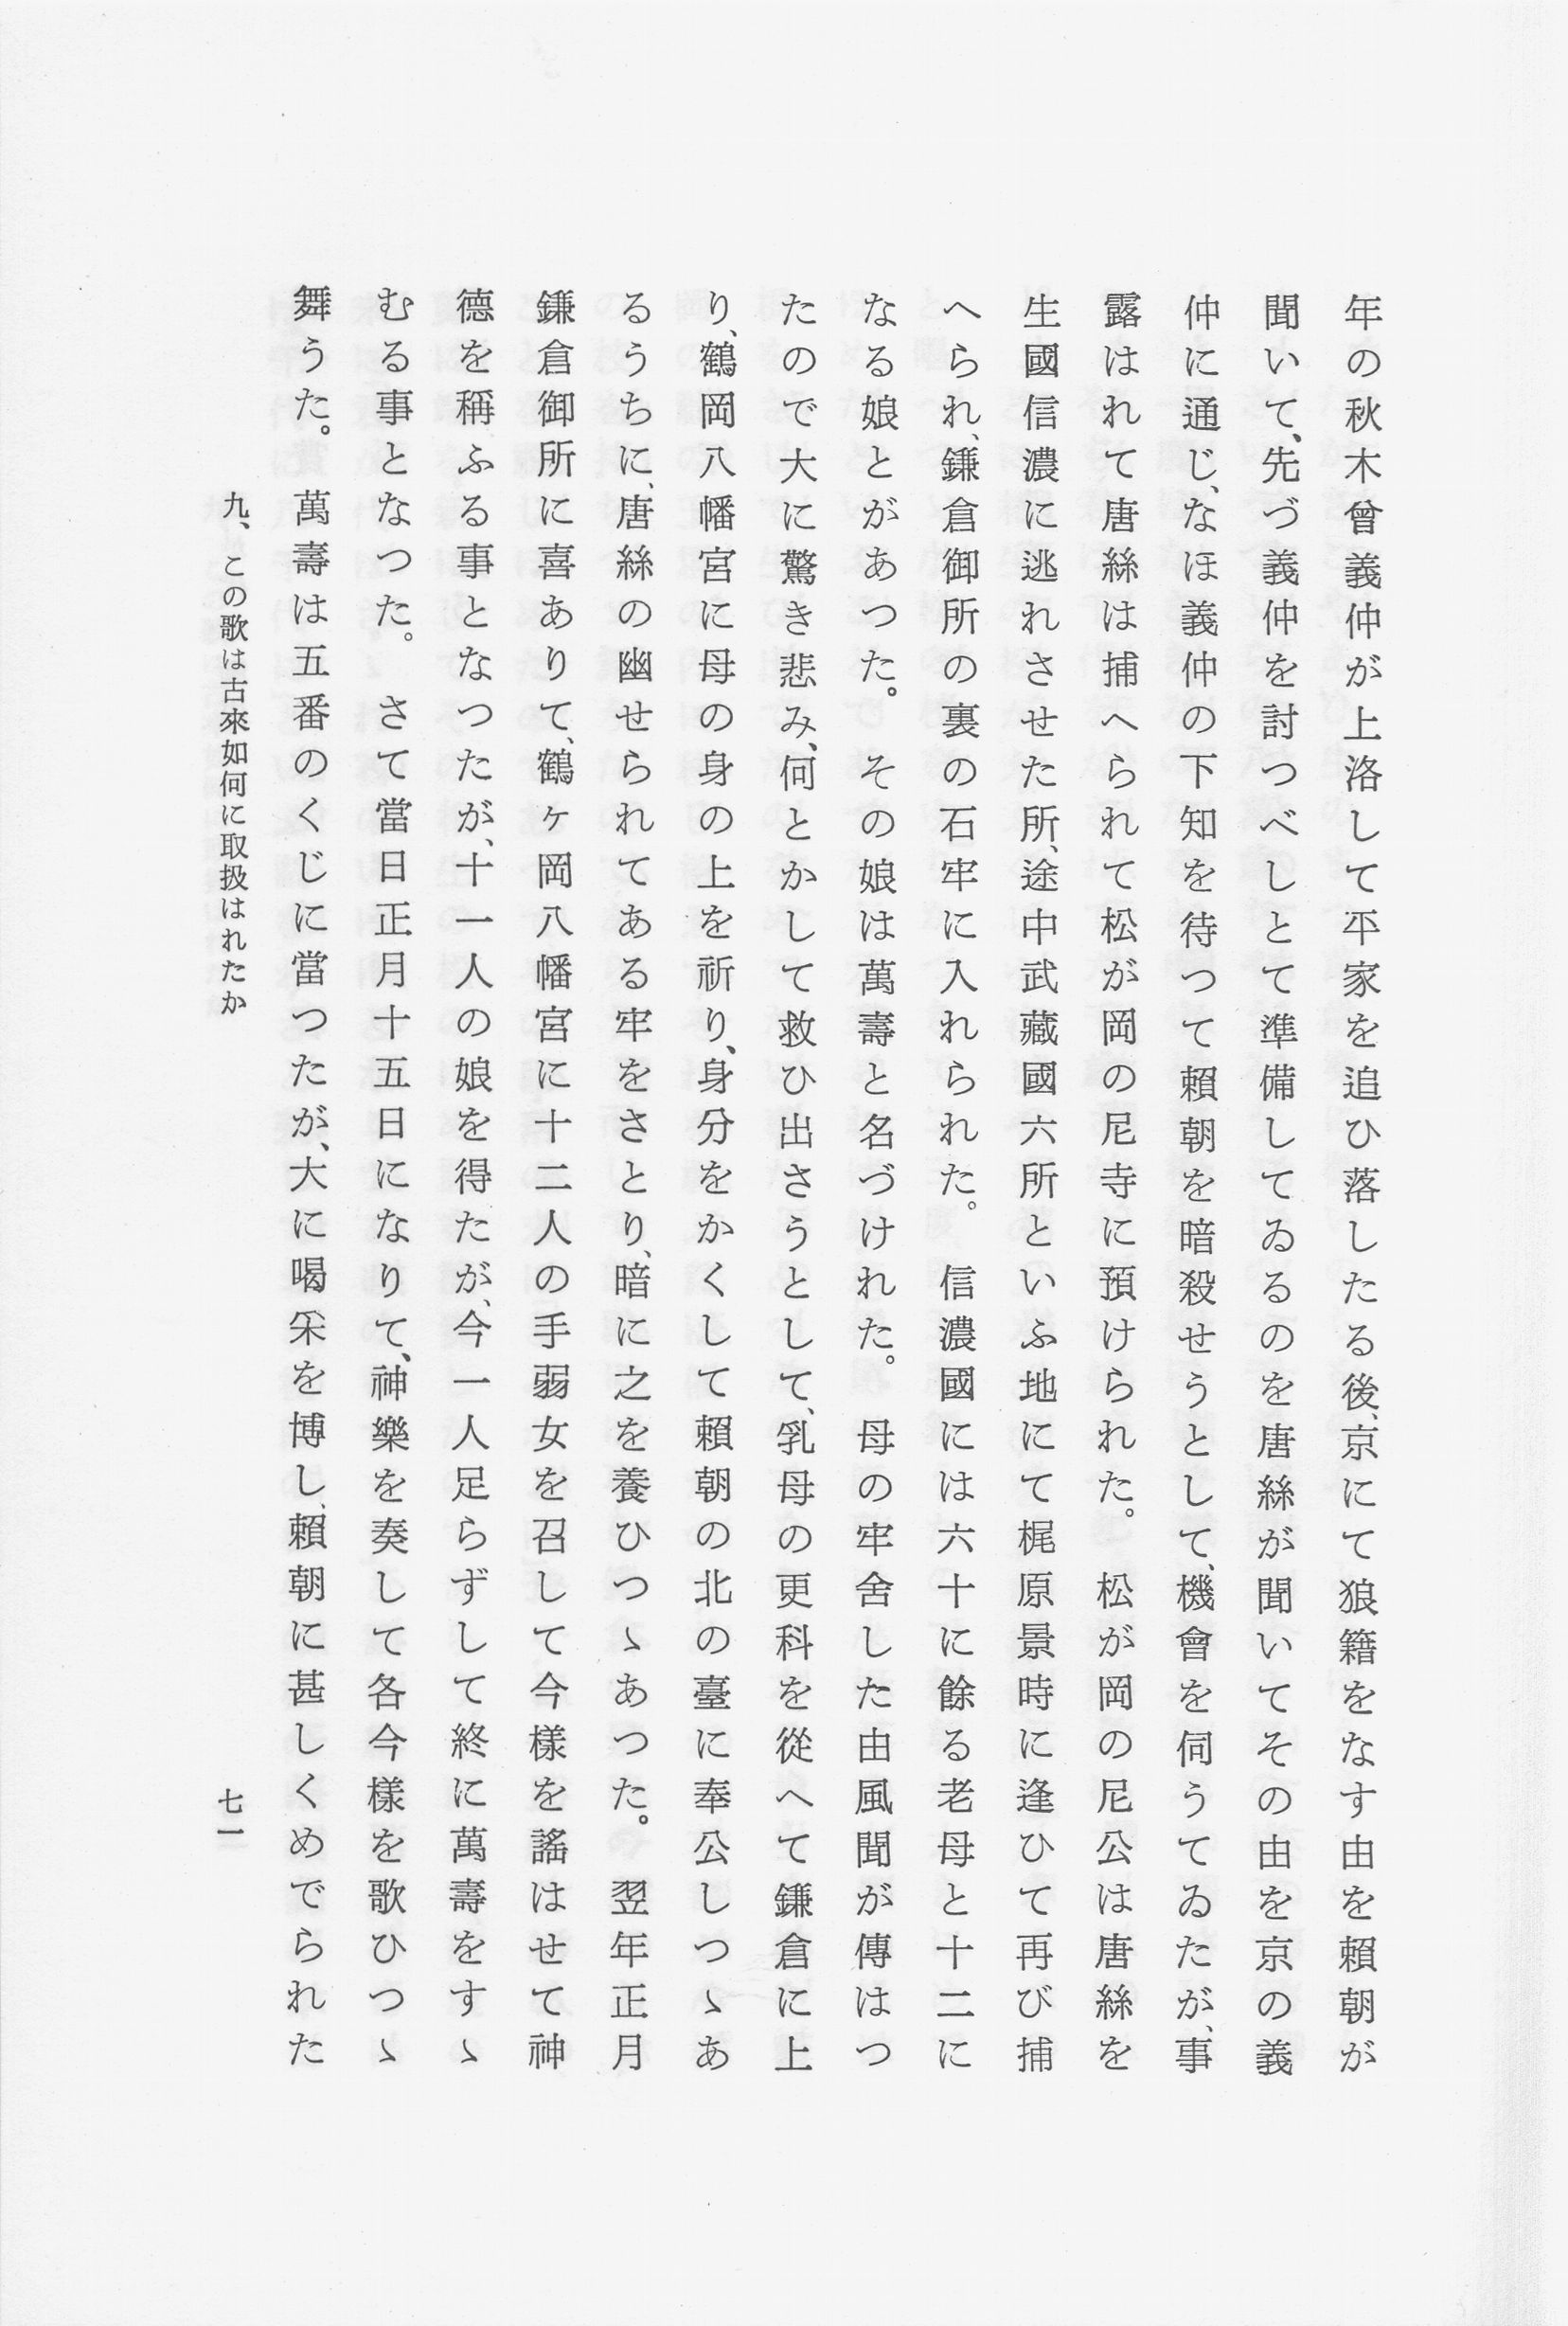 年の秋木曾義仲が上洛して平家を追ひ落したる後、京にて狼籍をなす由を賴朝が
聞いて、先づ義仲を討つべしとて準備してゐるのを唐絲が聞いてその由を京の義
仲に通じ、なほ義仲の下知を待つて賴朝を暗殺せうとして、機會を伺うてゐたが、事
露はれて唐絲は捕へられて松が岡の尼寺に預けられた。　松が岡の尼公は唐絲を
生國信濃に逃れさせた所、途中武藏國六所といふ地にて梶原景時に逢ひて再び捕
へられ、鎌倉御所の裏の石牢に入れられた。　信濃國には六十に餘る老母と十二に
なる娘とがあつた。　その娘は萬壽と名づけれた。　母の牢舍した由風聞が傳はつ
たので大に驚き悲み、何とかして救ひ出さうとして、乳母の更科を從へて鎌倉に上
り、鶴岡八幡宮に母の身の上を祈り、身分をかくして賴朝の北の臺に奉公しつゝあ
るうちに、唐絲の幽せられてある牢をさとり、暗に之を養ひつゝあつた。　翌年正月
鎌倉御所に喜ありて、鶴ヶ岡八幡宮に十二人の手弱女を召して今樣を謠はせて神
德を稱ふる事となつたが、十一人の娘を得たが、今一人足らずして終に萬壽をすゝ
むる事となつた。　さて當日正月十五日になりて、神樂を奏して各今樣を歌ひつゝ
舞うた。　萬壽は五番のくじに當つたが、大に喝采を博し、賴朝に甚しくめでられた
九、この歌は古來如何に取扱はれたか
七一